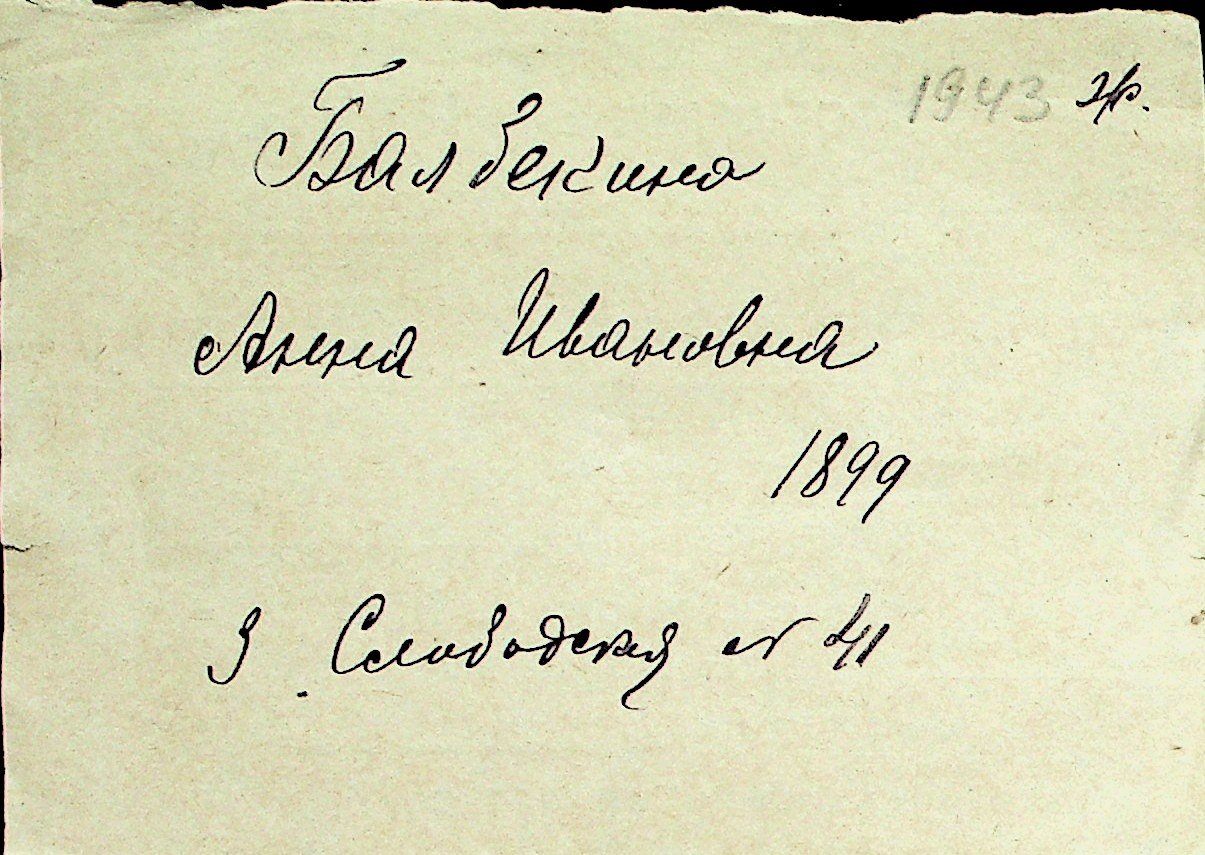 1943 гр.
Балбекина
Анна Ивановна
1899
3 Слободская № 41